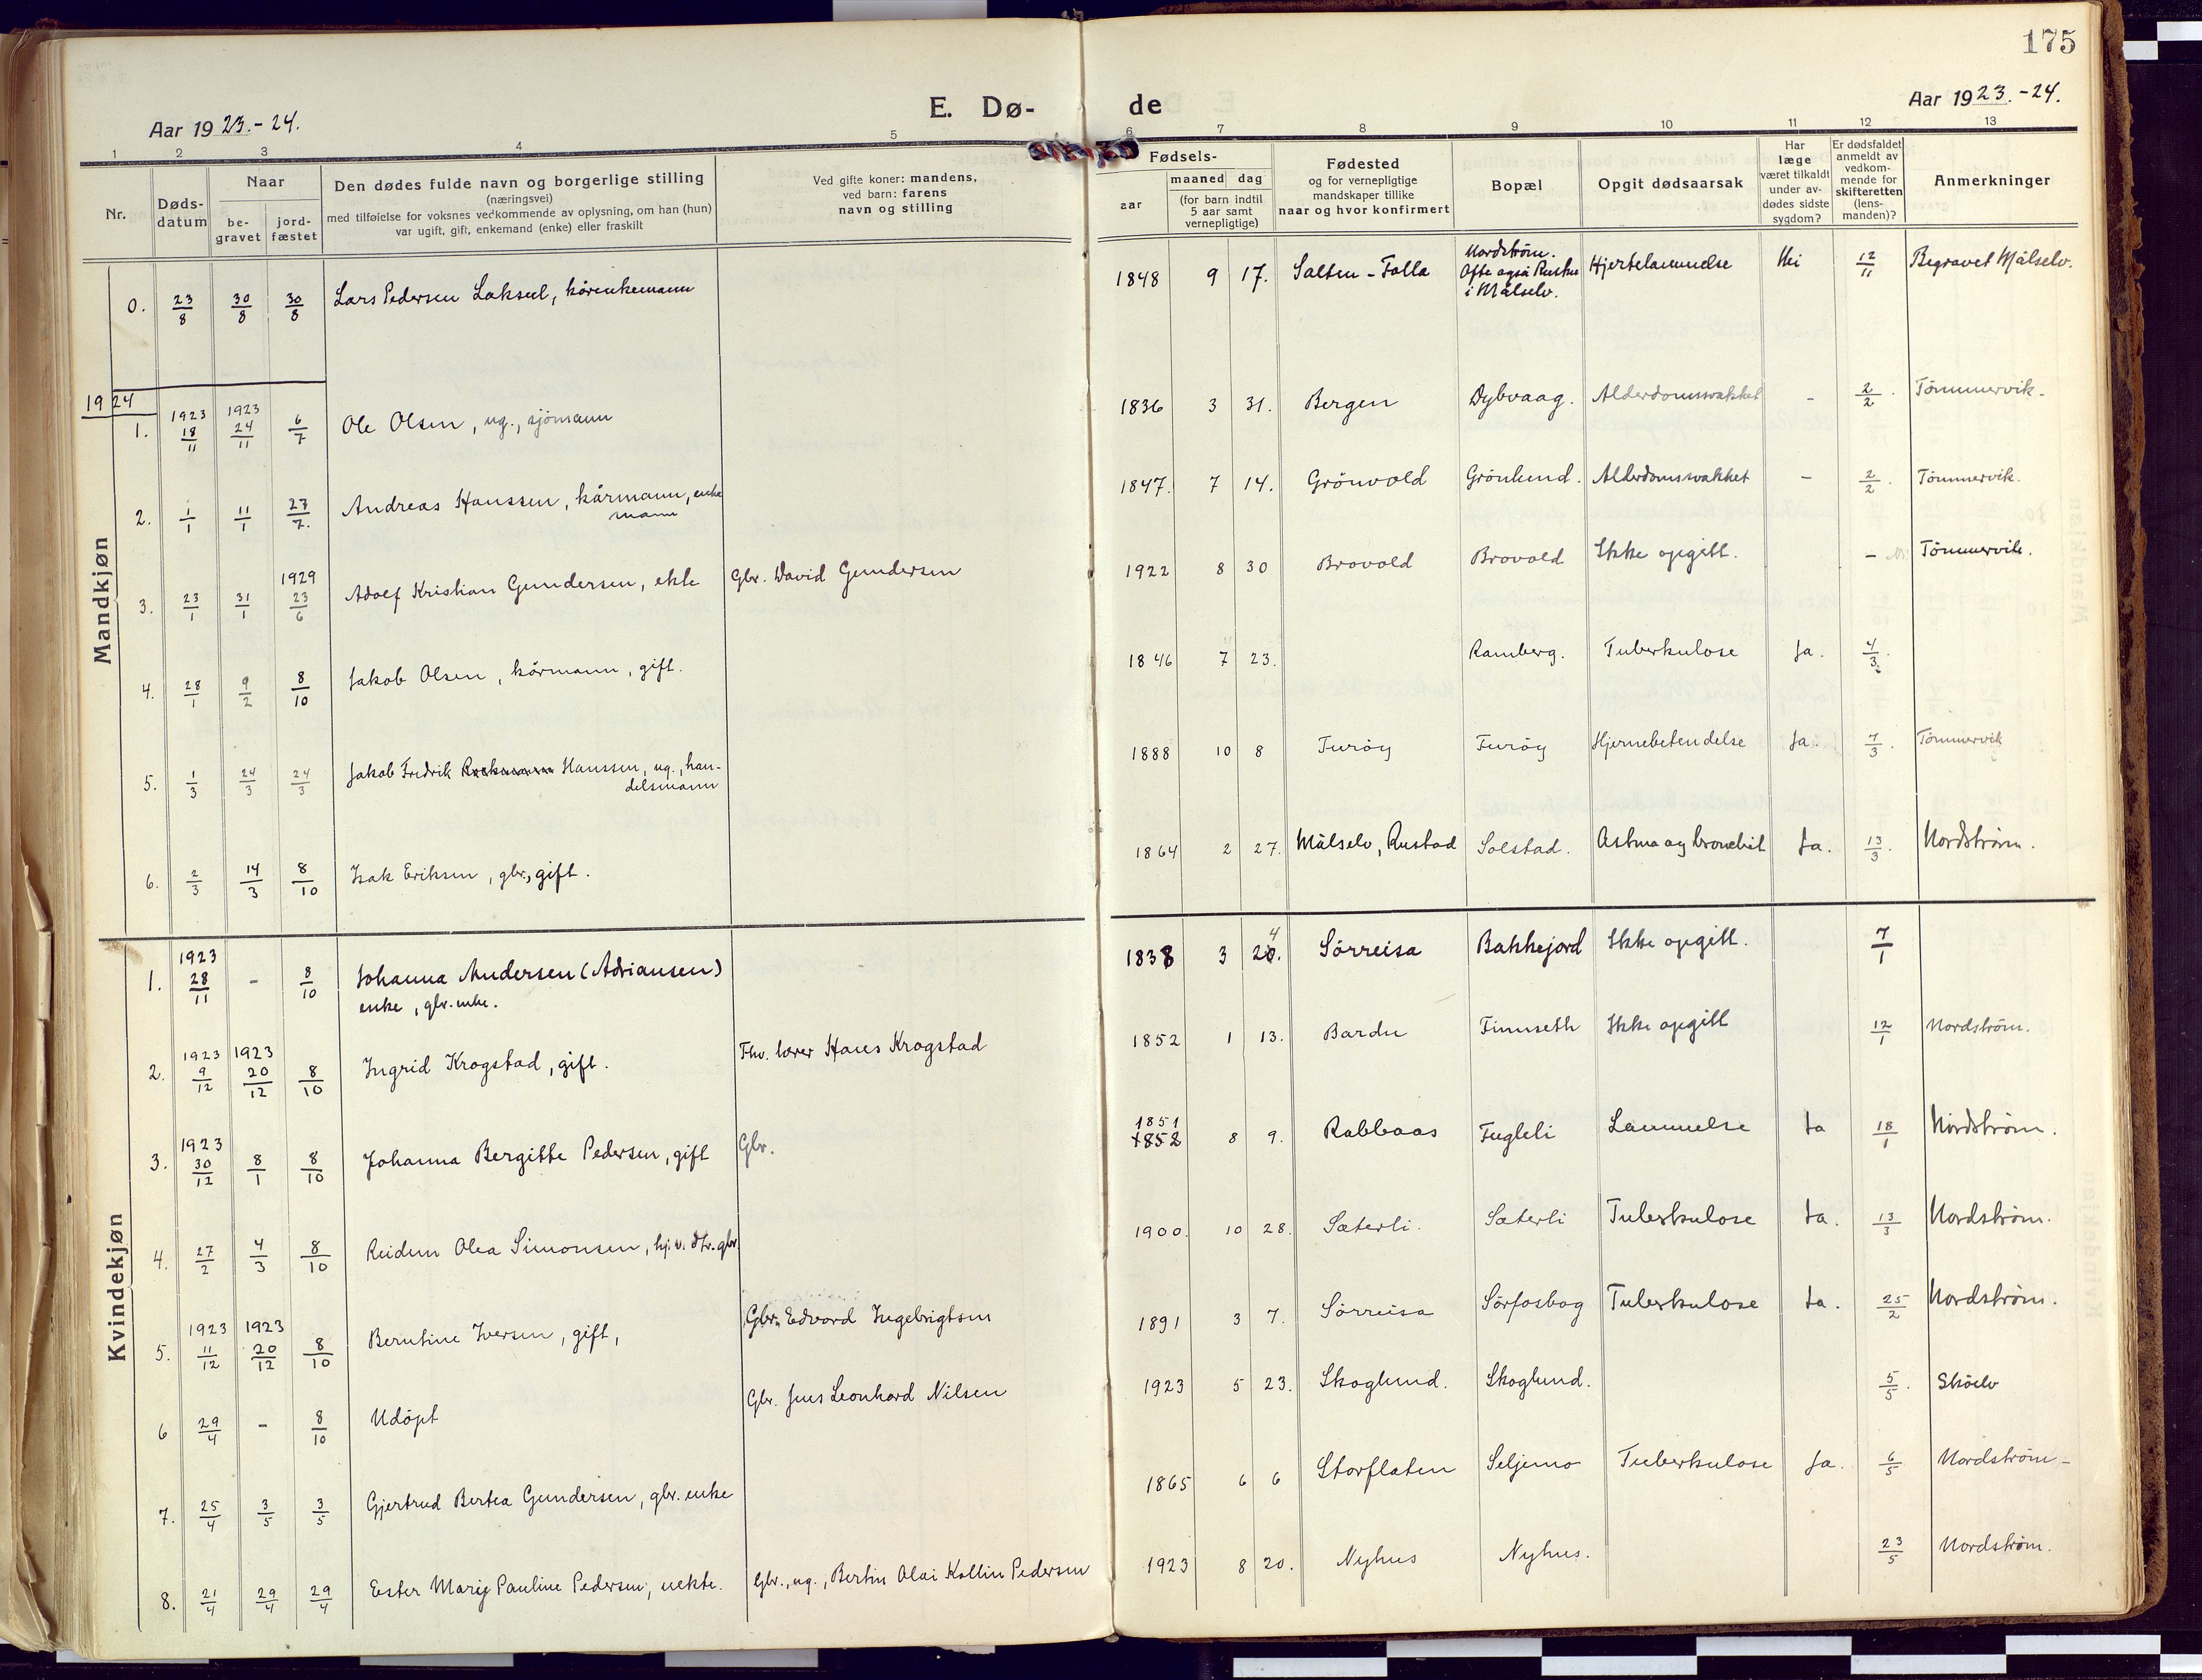 175
Aar 1923.-24.
E. Dø-
de
Aar 1923.-24.
1 2 3 4 5 6 7 8 9 10 11 12 13
Nr.
Døds-
datum
Naar
be-
gravet
jord-
fæstet
Den dødes fulde navn og borgerlige stilling
(næringsvei)
med tilføielse for voksnes vedkommende av oplysning, om han (hun)
var ugift, gift, enkemand (enke) eller fraskilt
Ved gifte koner: mandens,
ved barn: farens
navn og stilling
Fødsels-
aar
maaned dag
(for barn indtil
5 aar samt
vernepligtige)
Fødested
og for vernepligtige
mandskaper tillike
naar og hvor konfirmert
Bopæl
Opgit dødsaarsak
Har
læge
været tilkaldt
under av-
dødes sidste
sygdom?
Er dødsfaldet
anmeldt av
vedkom-
mende for
skifteretten
(lens-
manden)?
Anmerkninger
Mandkjøn
0. 23/8 30/8 30/8 Lars Pedersen Laksel, kårenkemann 1848 9 17. Salten - Folla Nordstrøm. Ofte også Rustad i Målselv. Hjertelammelse Nei 12/11 Begravet Målselv.
1924
1. 1923 18/11 1923 24/11 6/7 Ole Olsen, ug., sjömann 1836 3 31. Bergen Dybvaag. Alderdomssvakhet - 2/2. Tömmervik.
2. 1/1 11/1 27/7. Andreas Hanssen, kårmann, enkemann 1847. 7 14. Grönvold Grönlund. Alderdomssvakhet - 2/2. Tömmervik.
3. 23/1 31/1 1929 23/6 Adolf Kristian Gundersen, ekte Gbr. David Gundersen 1922 8 30 Brovold Brovold Ikke opgitt. - Tömmervik.
4. 28/1 9/2 8/10 Jakob Olsen, kårmann, gift. 1846 7 23. Ramberg. Tuberkulose Ja. 4/3.
5. 1/3 24/3 24/3 Jakob Fredrik Hanssen, ug., han-
delsmann 1888 10 8 Furöy Furöy Hjernebetendelse Ja. 7/3. Tömmervik
6. 2/3 14/3 8/10 Isak Eriksen, gbr., gift. 1864 2 27. Målselv, Rustad Solstad. Astma og bronchit Ja. 13/3. Nordstrøm.
Kvindekjøn
1. 1923 28/11 - 8/10 Johanna Andersen (Adriansen)
enke, gbr. enke. 1838 3 24. Sörreisa Bakkejord Ikke opgitt. 7/1
2. 1923 9/12 1923 20/12 8/10 Ingrid Krogstad, gift. Fhv. lærer Hans Krogstad 1852 1 13. Bardu Finnseth Ikke opgitt 12/1 Nordström.
3. 1923 30/12 8/1 8/10 Johanna Bergitte Pedersen, gift Gbr. 1851 1852 8 9. Rabbaas Fugleli Lammelse Ja 18/1 Nordström.
4. 27/2 4/3 8/10 Reidun Olea Simonsen, hj. v. dtr. gbr. 1900. 10 28. Sæterli. Sæterli Tuberkulose Ja. 13/3 Nordström.
5. 1923 11/12 1923 20/12 8/10 Berntine Iversen, gift, Gbr. Edvard Ingebrigtsen 1891 3 7. Sörreisa Sörfosbog Tuberkulose Ja. 25/2 Nordström.
6 29/4 - 8/10 Udöpt Gbr. Jens Leonhard Nilsen 1923 5 23. Skoglund. Skoglund. 5/5. Sköelv
7. 25/4 3/5 3/5 Gjertrud Bertea Gundersen, gbr. enke 1865 6 6 Storflaten Seljemo Tuberkulose Ja. 6/5 Nordström -
8. 21/4 29/4 29/4 Ester Mary Pauline Pedersen, uekte. Gbr., ug., Bertin Olai Kollin Pedersen 1923 8 20. Nyhus Nyhus. 23/5 Nordström.